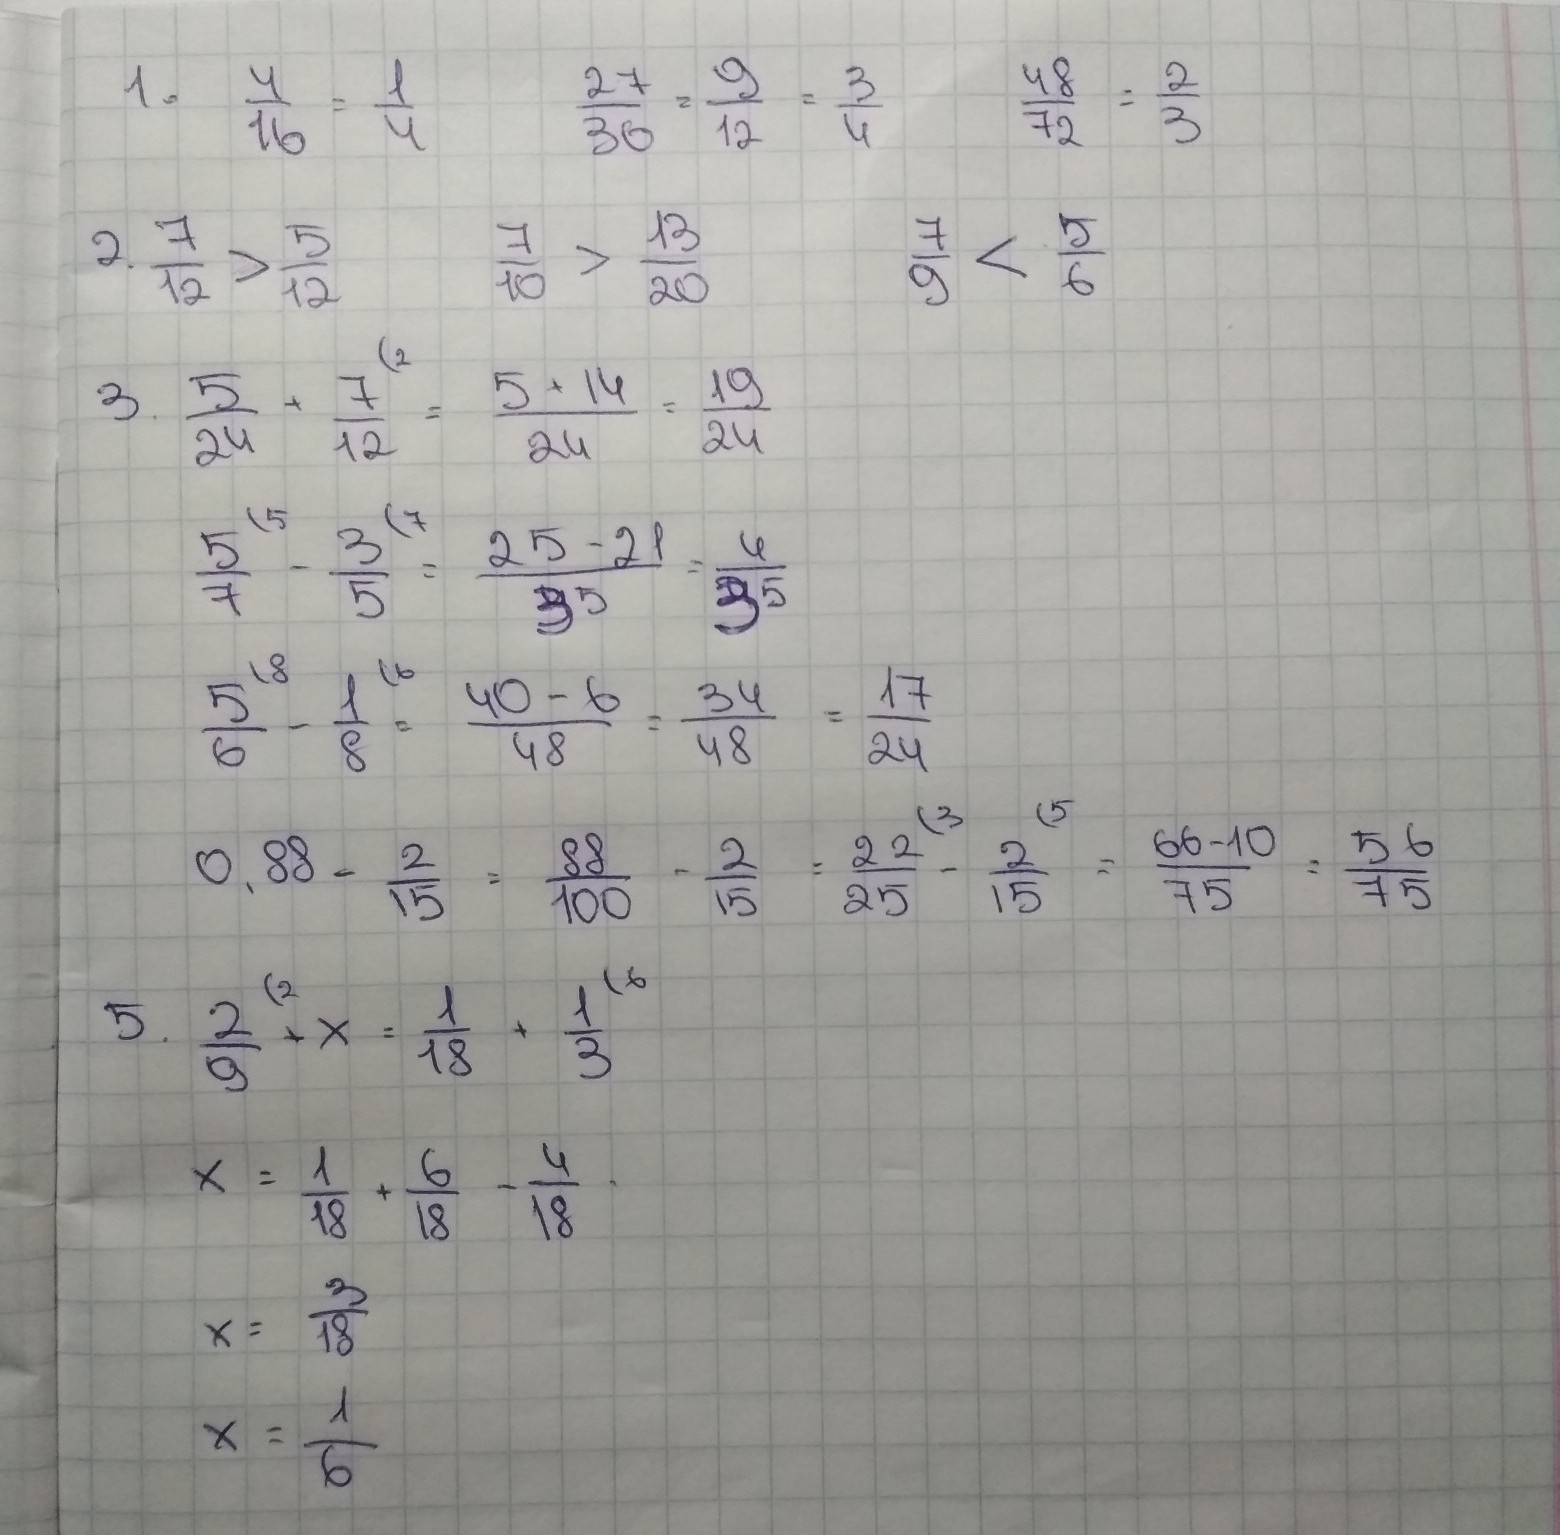 1. 4/16 = 1/4 27/36 = 9/12 = 3/4 48/72 = 2/3
2. 7/12 > 5/12 7/10 > 13/20 7/9 < 5/6
3. 5/24 + 7/12 (2 = 5+14/24 = 19/24
5/7 (5 - 3/5 (7 = 25-21/35 = 4/35
5/6 (8 - 1/8 (6 = 40-6/48 = 34/48 = 17/24
0,88 - 2/15 = 88/100 - 2/15 = 22/25 (3 - 2/15 (5 = 66-10/75 = 56/75
5. 2/9 (2 + x = 1/18 + 1/3 (6
x = 1/18 + 6/18 - 4/18
x = 3/18
x = 1/6